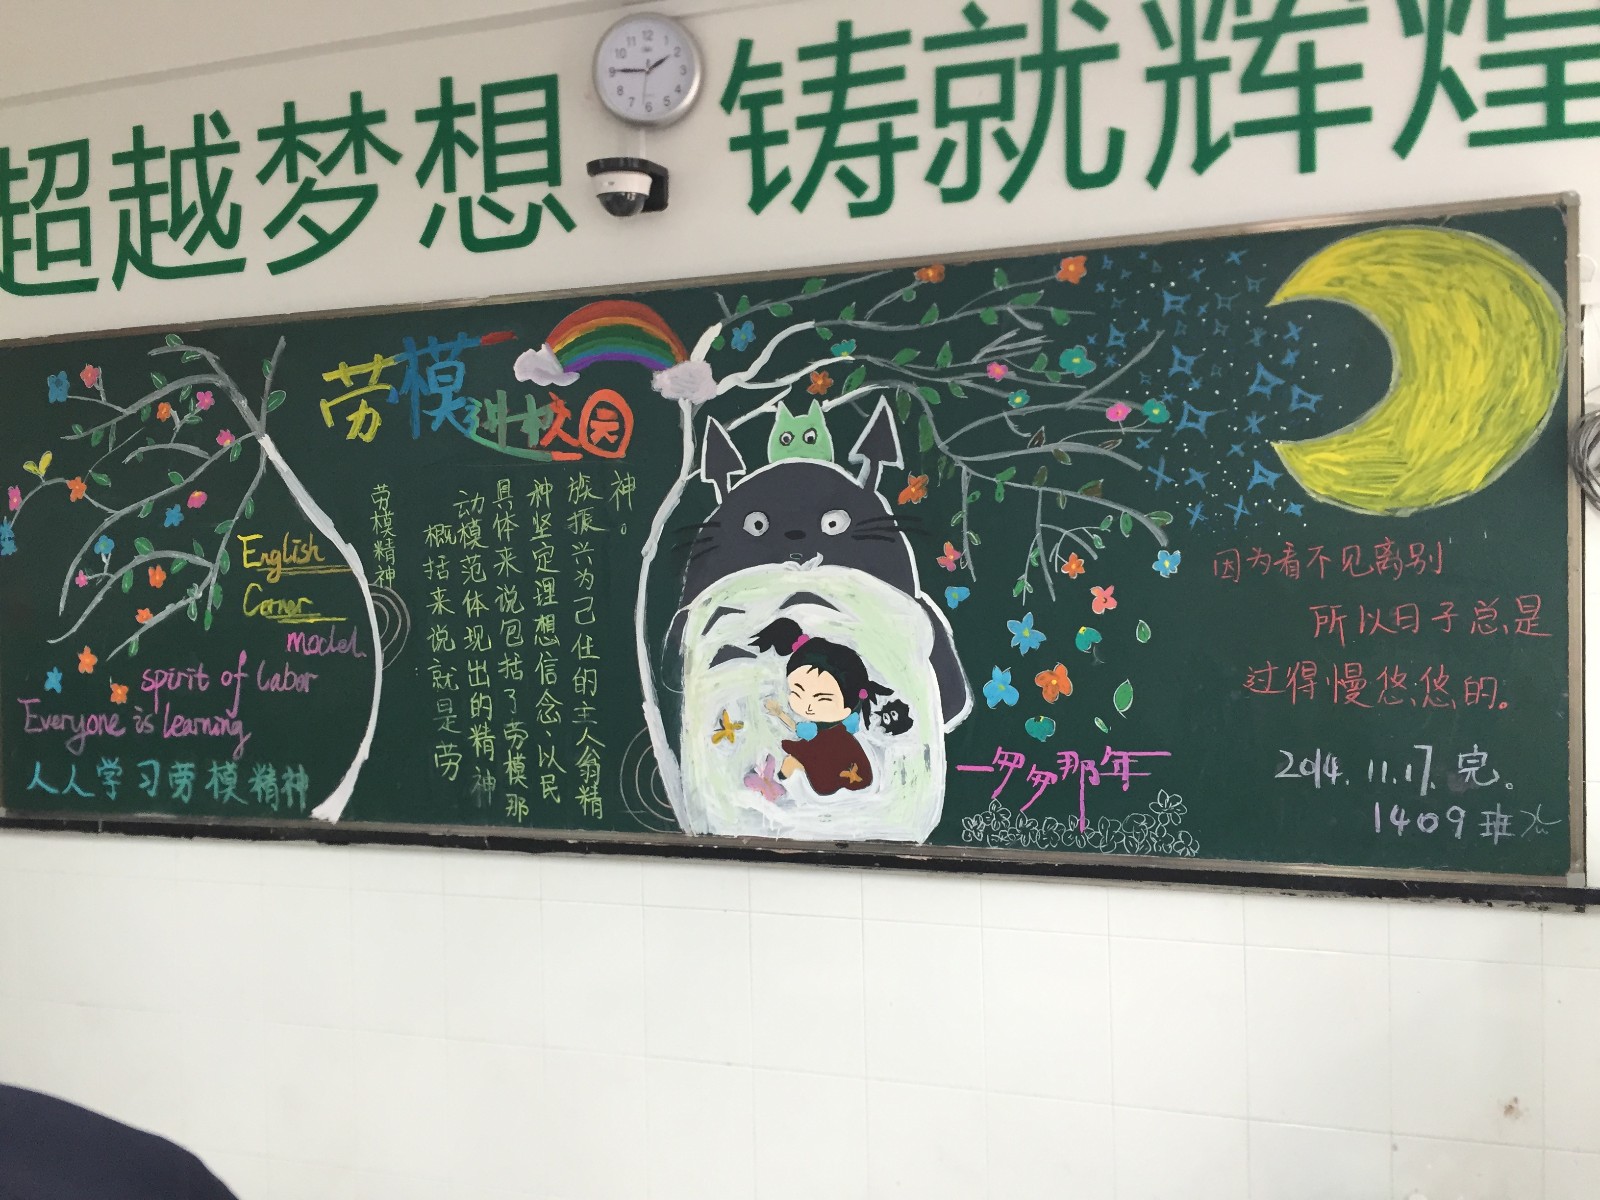 超越梦想 铸就辉煌
劳模进校园
English
Corner
model
spirit of labor
Everyone is learning
人人学习劳模精神
劳模精神
概括来说就是劳
动模范体现出的精神
具体来说包括了劳模那
种坚定理想信念、以民
族振兴为己住的主人翁精
神。
匆匆那年
因为看不见离别
所以日子总是
过得慢悠悠的。
2014.11.17.完。
1409班